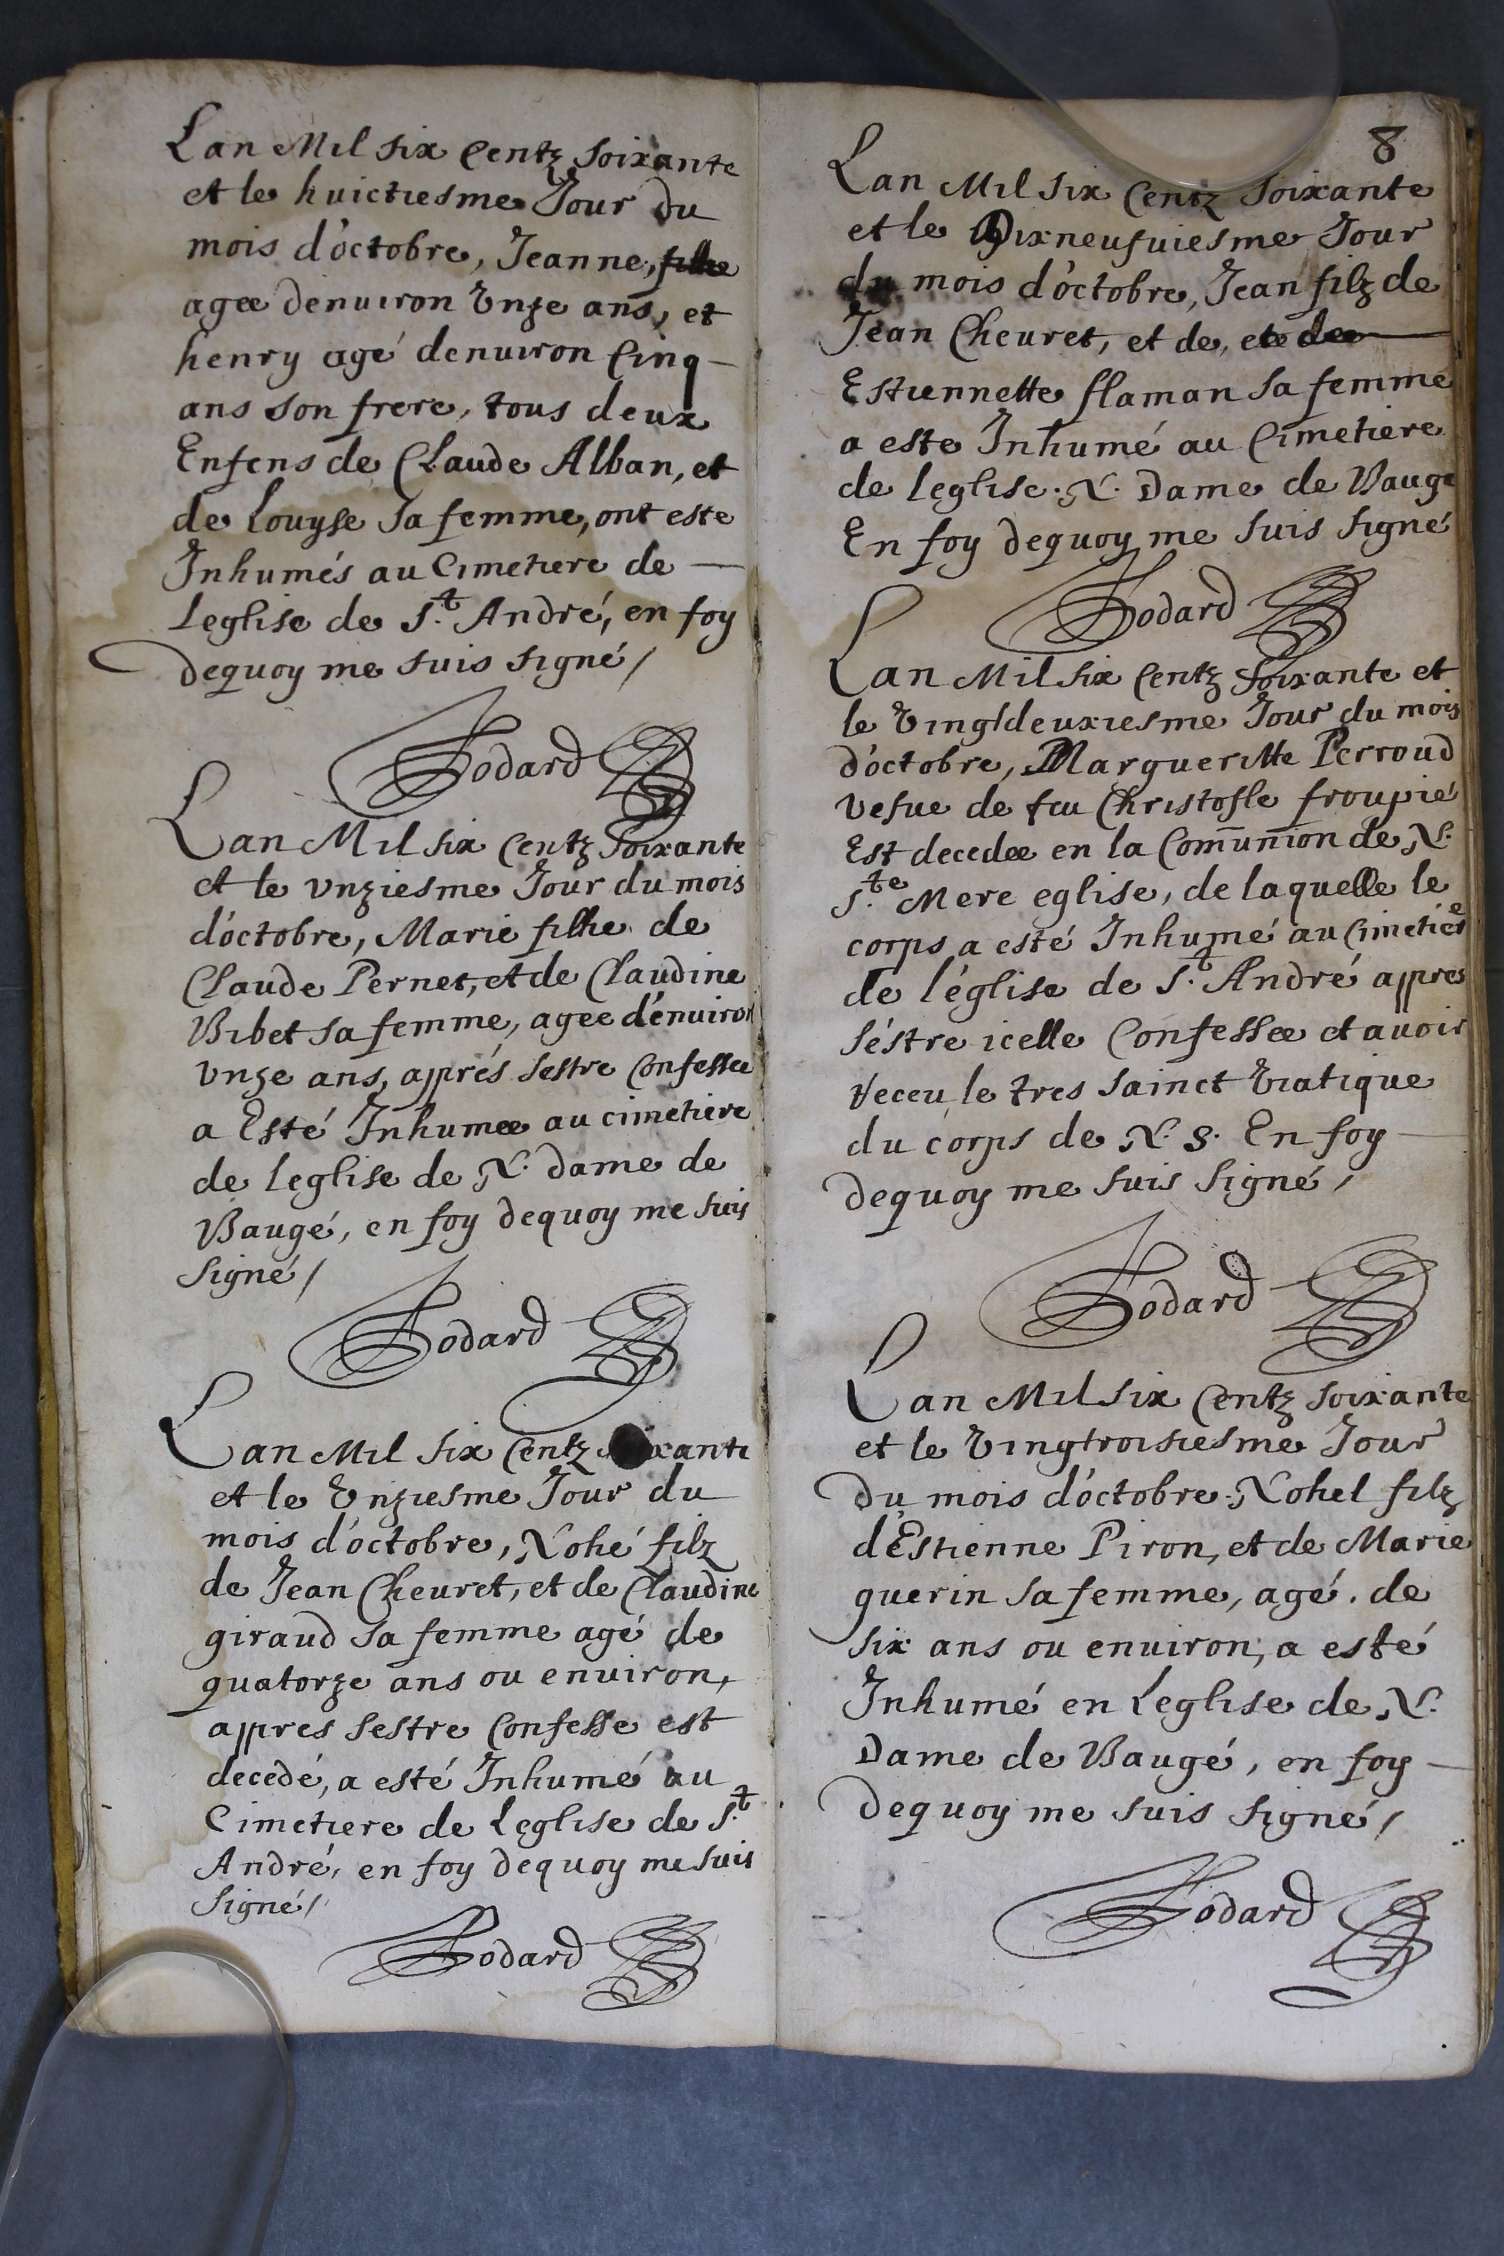 Lan Mil six Centz soixante
et le huictiesme Jour du
mois d'octobre, Jeanne, fille
agee denuiron Vnze ans, et
henry agé denuiron Cinq
ans son frere, tous deux
Enfens de Claude Alban, et
de Louyse sa femme, ont este
Inhumés au Cimetiere de
Leglise de S.t André, en foy
dequoy me suis signé /
Jodard
Lan Mil six Centz soixante
et le vnziesme Jour du mois
d'octobre, Marie filhe de
Claude Pernet, et de Claudine
Bibet sa femme, agee d'enuiron
vnze ans, apprés sestre Confessee
a Esté Inhumee au cimetiere
de leglise de N. Dame de
Baugé, en foy dequoy me suis
signé /
Jodard
Lan Mil six Centz soixante
et le Vnziesme Jour du
mois d'octobre, Nohé filz
de Jean Cheuret, et de Claudine
giraud sa femme agé de
quatorze ans ou enuiron,
appres sestre Confesse est
decedé, a esté Inhumé au
Cimetiere de Leglise de S.t
André, en foy dequoy me suis
signé /
Jodard
8
Lan Mil six Centz soixante
et le Dixneufuiesme Jour
du mois d'octobre, Jean filz de
Jean Cheuret, et de, et de
Estiennette flaman sa femme
a este Inhumé au Cimetiere
de Leglise. N. Dame de Bauge
En foy dequoy me suis signé
Jodard
Lan Mil six Centz soixante et
le Vingtdeuxiesme Jour du mois
d'octobre, Margueritte Perroud
vefue de feu Christofle froupié
Est decedee en la Com̄union de N.
S.te Mere eglise, de laquelle le
corps a esté Inhumé au Cimetiere
de l'église de S.t André appres
s'éstre icelle Confessee et auoir
receu le tres sainct Viatique
du corps de N. S. En foy
dequoy me suis signé /
Jodard
Lan Mil six Centz soixante
et le Vingtroisiesme Jour
du mois d'octobre. Nohel filz
d'Estienne Piron, et de Marie
guerin sa femme, agé. de
six ans ou enuiron, a esté
Inhumé en Leglise de N.
Dame de Baugé, en foy
dequoy me suis signé /
Jodard